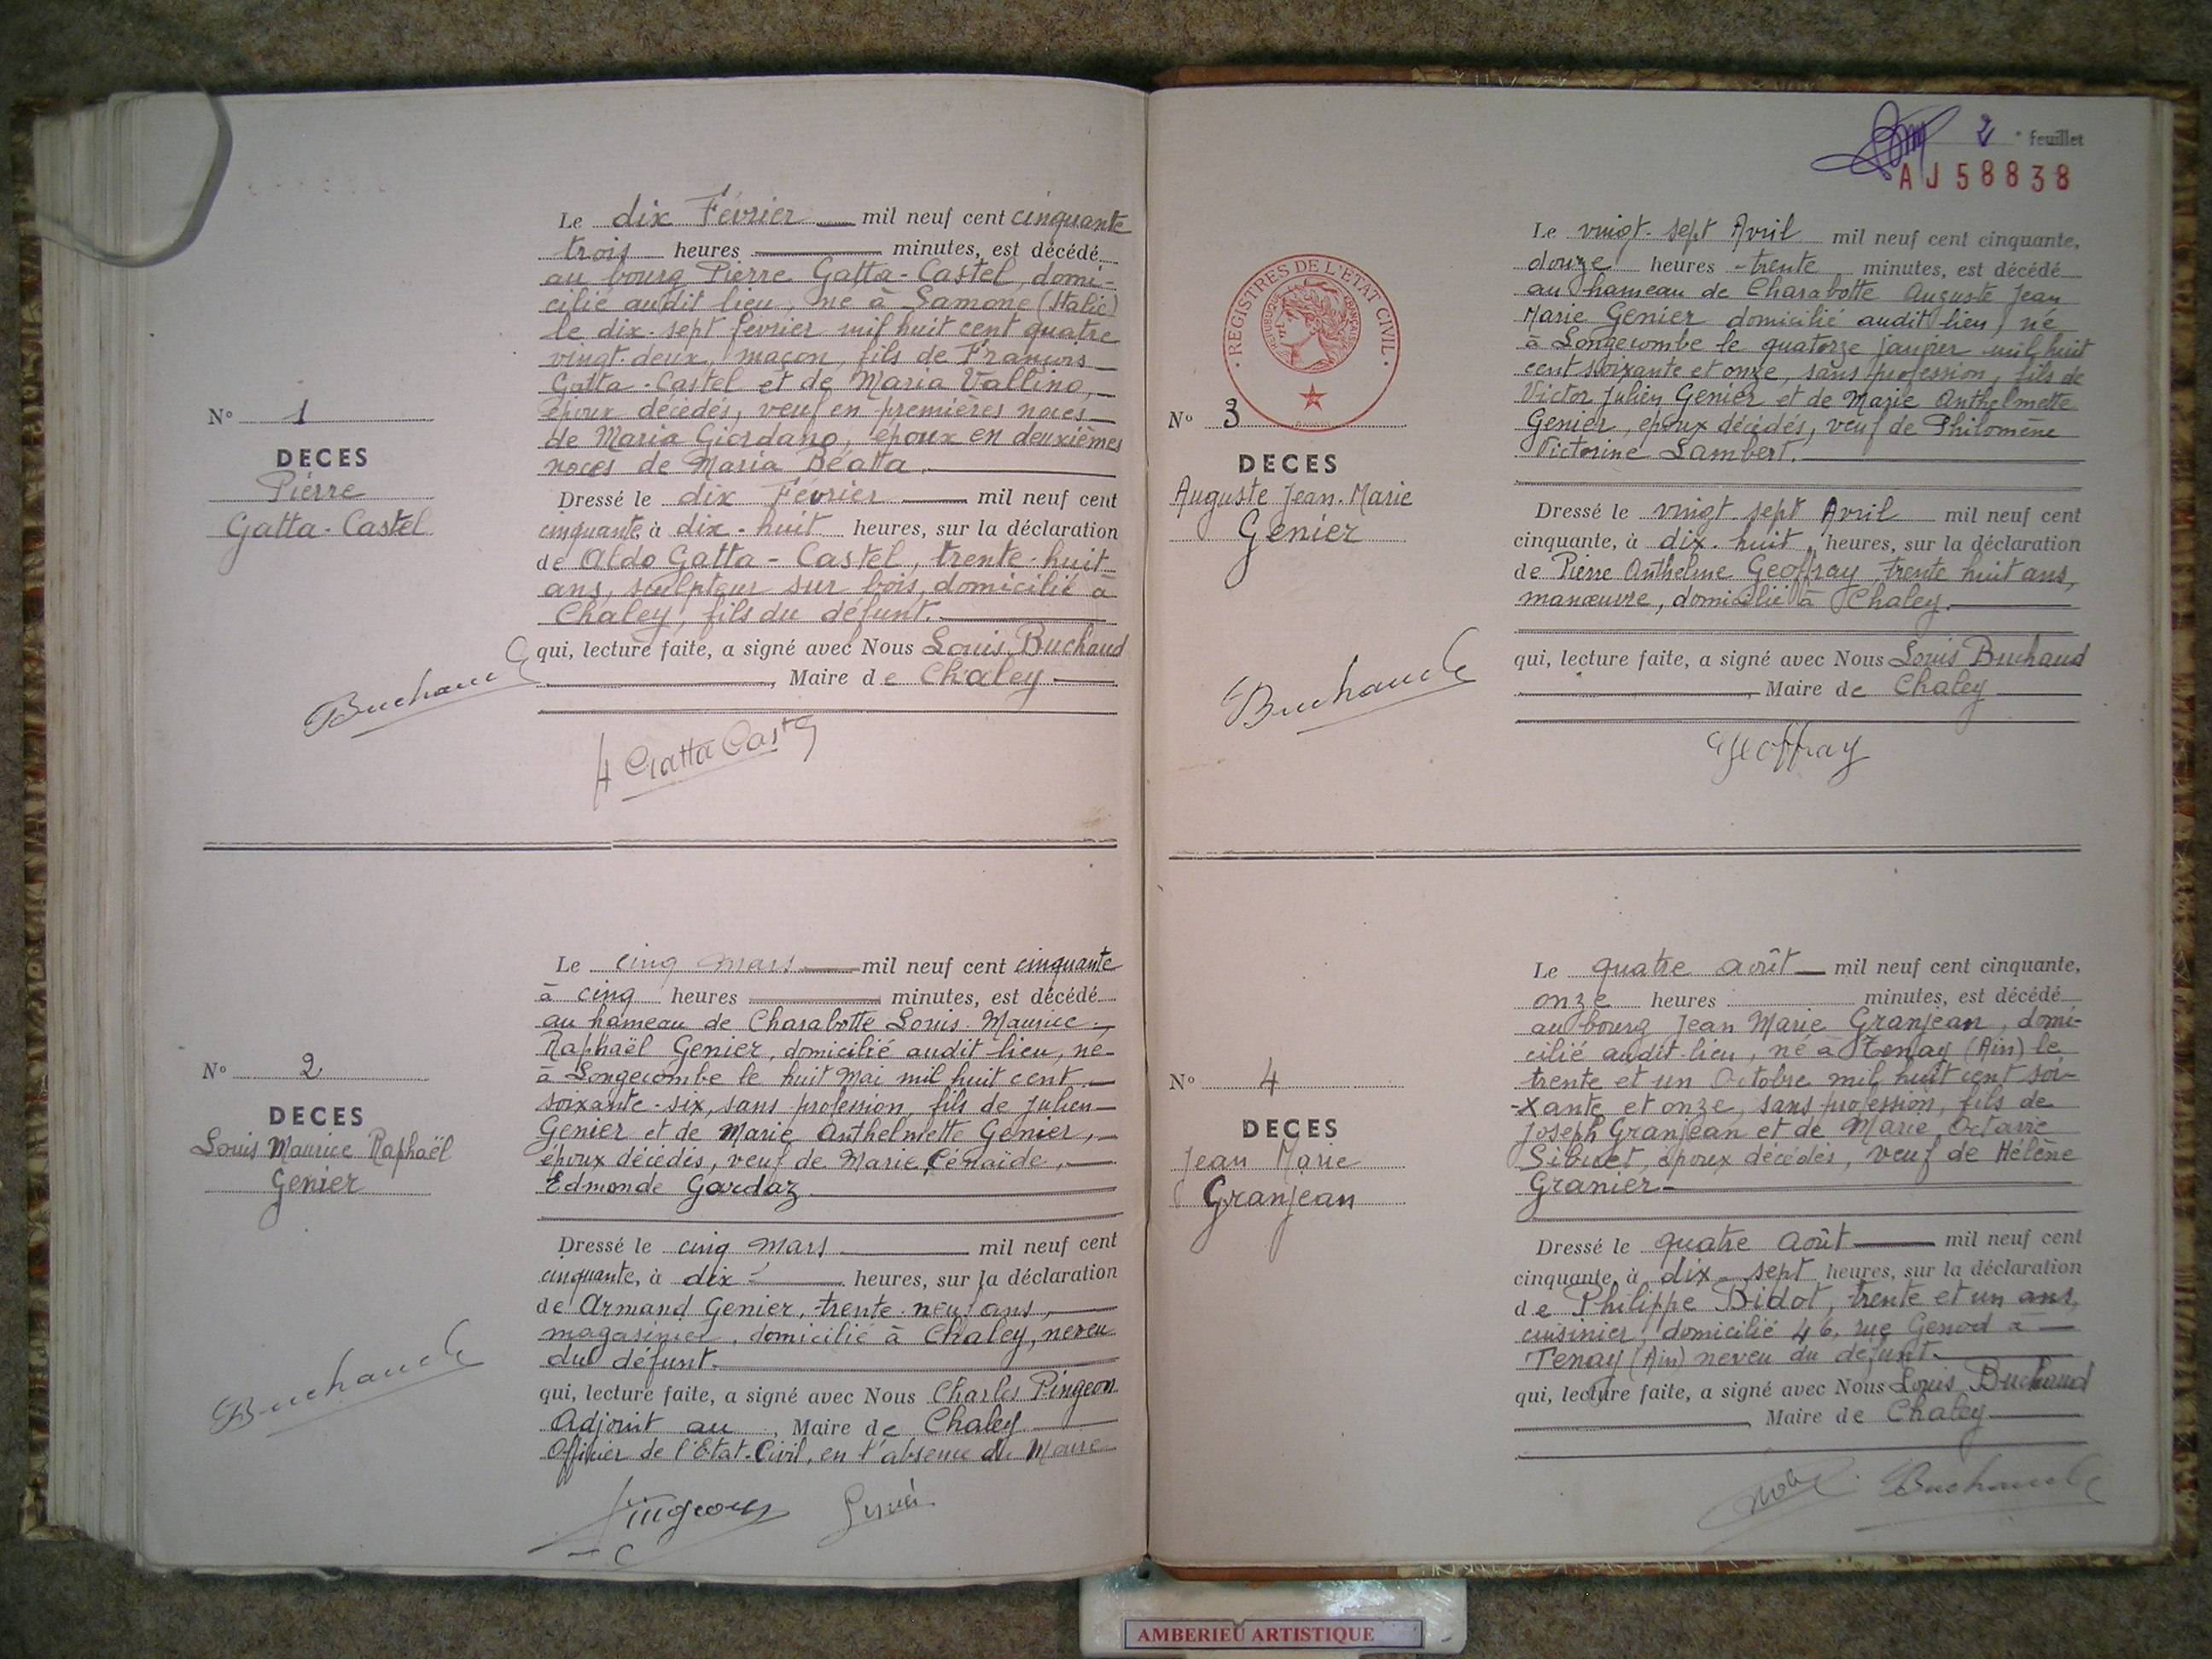 Le dix Février mil neuf cent cinquante
trois heures minutes, est décédé
au bourg Pierre Gatta-Castel, domi-
cilié audit lieu, né à Samone (Italie)
le dix-sept février mil huit cent quatre
vingt-deux, maçon, fils de François
Gatta-Castel et de Maria Vallino,
époux décédés, veuf en premières noces
de Maria Giordano, époux en deuxièmes
noces de Maria Béatta.
N° 1
DECES
Pierre
Gatta-Castel
Dressé le dix Février mil neuf cent
cinquante, à dix-huit heures, sur la déclaration
de Aldo Gatta-Castel, trente-huit
ans, sculpteur sur bois, domicilié à
Chaley, fils du défunt.
qui, lecture faite, a signé avec Nous Louis Buchaud
Maire de Chaley
Buchaud
Gatta Castel
Le cinq mars mil neuf cent cinquante
à cinq heures minutes, est décédé
au hameau de Charabotte Louis-Maurice-
Raphaël Genier, domicilié audit lieu, né
à Longecombe le huit Mai mil huit cent
soixante-six, sans profession, fils de Julien
Genier et de Marie Anthelmette Genier,
époux décédés, veuf de Marie,
Edmonde Gardaz
N° 2
DECES
Louis Maurice Raphaël
Genier
Dressé le cinq mars mil neuf cent
cinquante, à dix heures, sur la déclaration
de Armand Genier, trente-neuf ans,
magasinier, domicilié à Chaley, neveu
du défunt.
qui, lecture faite, a signé avec Nous Charles Pingeon
Adjoint au, Maire de Chaley
Officier de l'Etat-Civil, en l'absence du Maire
Buchaud
Pingeon Genier
2 e feuillet
AJ58838
REGISTRES DE L'ETAT CIVIL
REPUBLIQUE FRANÇAISE
Le vingt-sept Avril mil neuf cent cinquante,
douze heures -trente minutes, est décédé
au hameau de Charabotte Auguste Jean
Marie Genier domicilié audit lieu, né
à Longecombe le quatorze janvier mil huit
cent soixante et onze, sans profession, fils de
Victor Julien Genier et de Marie Anthelmette
Genier, époux décédés, veuf de Philomène
Victorine Lambert.
N° 3
DECES
Auguste Jean-Marie
Genier
Dressé le vingt-sept Avril mil neuf cent
cinquante, à dix-huit heures, sur la déclaration
de Pierre Anthelme Geoffray trente huit ans,
manœuvre, domicilié à Chaley.
qui, lecture faite, a signé avec Nous Louis Buchaud
Maire de Chaley
Buchaud
Geoffray
Le quatre août mil neuf cent cinquante,
onze heures minutes, est décédé
au bourg Jean Marie Granjean, domi-
cilié audit-lieu, né à Tenay (Ain) le
trente et un Octobre mil huit cent soi-
-xante et onze, sans profession, fils de
Joseph Granjean et de Marie Octavie
Sibuet, époux décédés, veuf de Hélène
Granier
N° 4
DECES
Jean Marie
Granjean
Dressé le quatre Août mil neuf cent
cinquante, à dix-sept heures, sur la déclaration
de Philippe Bidot, trente et un ans,
cuisinier, domicilié 46, rue Genod à
Tenay (Ain) neveu du défunt.
qui, lecture faite, a signé avec Nous Louis Buchaud
Maire de Chaley
Buchaud
AMBERIEU ARTISTIQUE